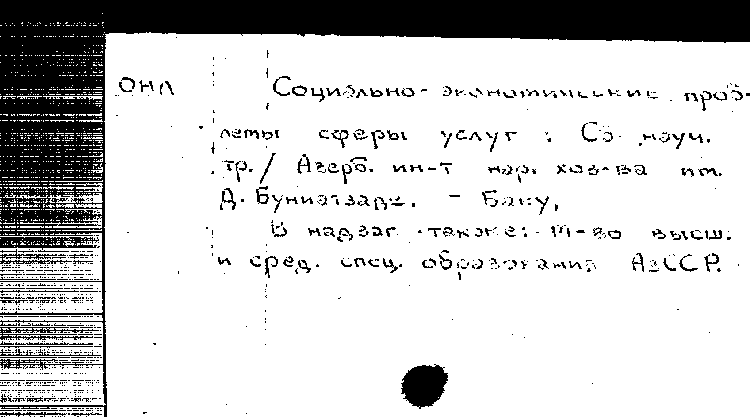 ОНЛ Социально-экономические проб-
лемы сферы услуг : Сб. науч.
тр. / Азерб. ин-т нар. хоз-ва им.
Д. Буниатзаде. - Баку,
В надзаг. также: М-во высш.
и сред. спец. образования АзССР.